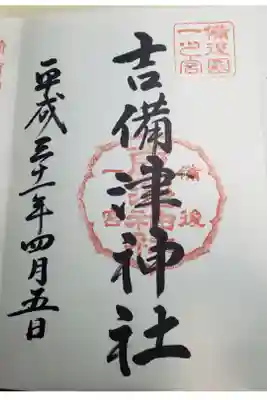 備後国
一之宮
吉備津神社
平成三十一年四月五日